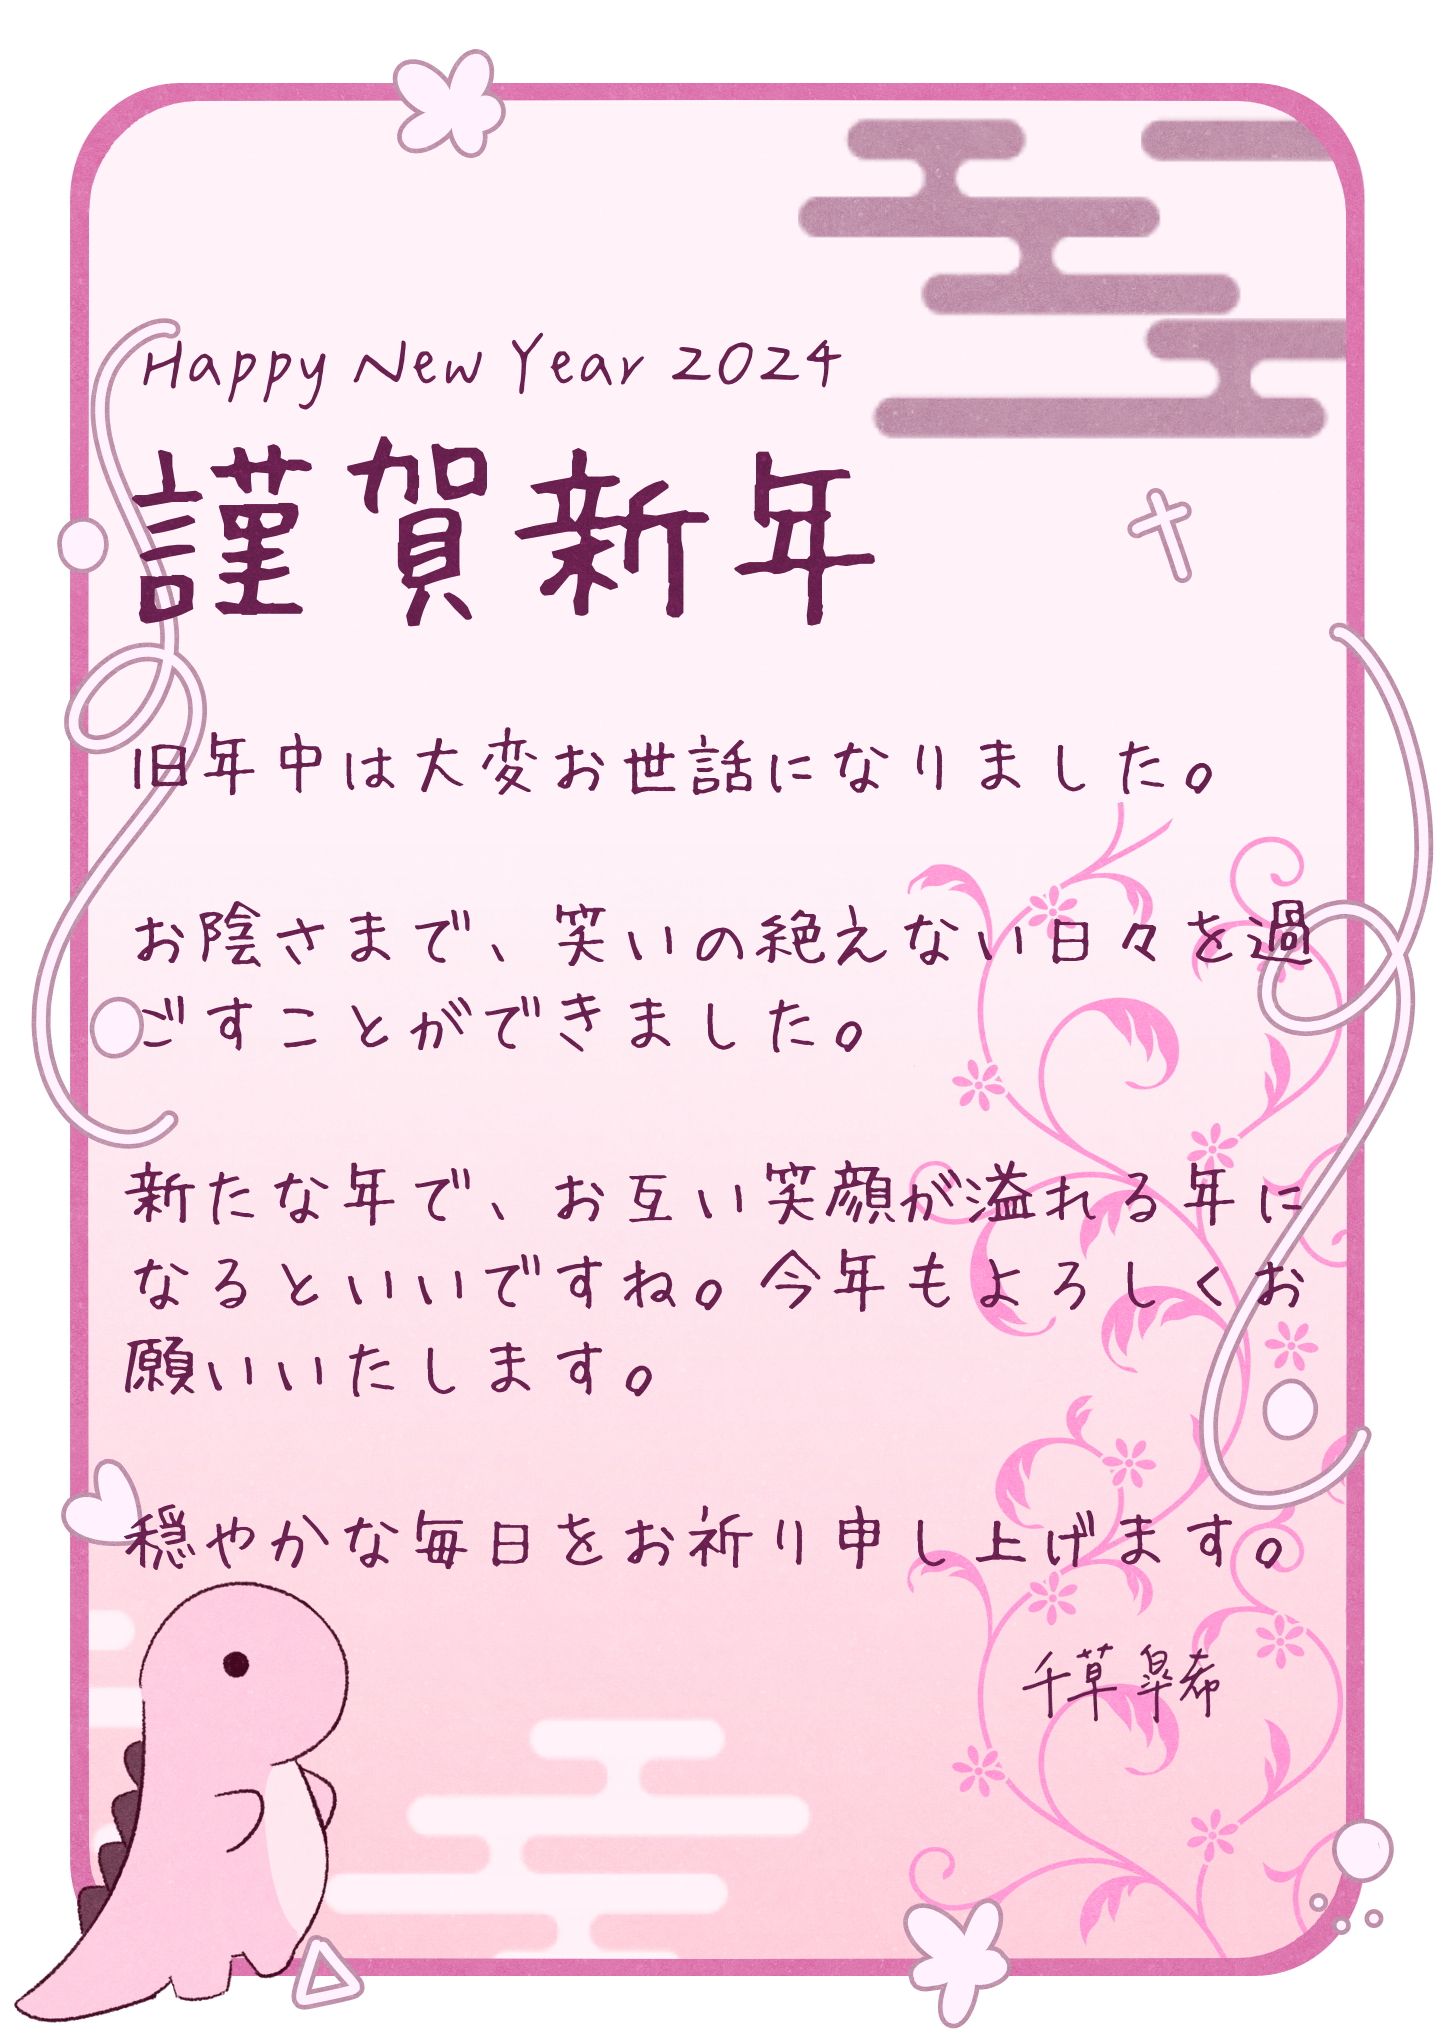 Happy New Year 2024
謹賀新年
旧年中は大変お世話になりました。
お陰さまで、笑いの絶えない日々を過
ごすことができました。
新たな年で、お互い笑顔が溢れる年に
なるといいですね。今年もよろしくお
願いいたします。
穏やかな毎日をお祈り申し上げます。
千草 皐希